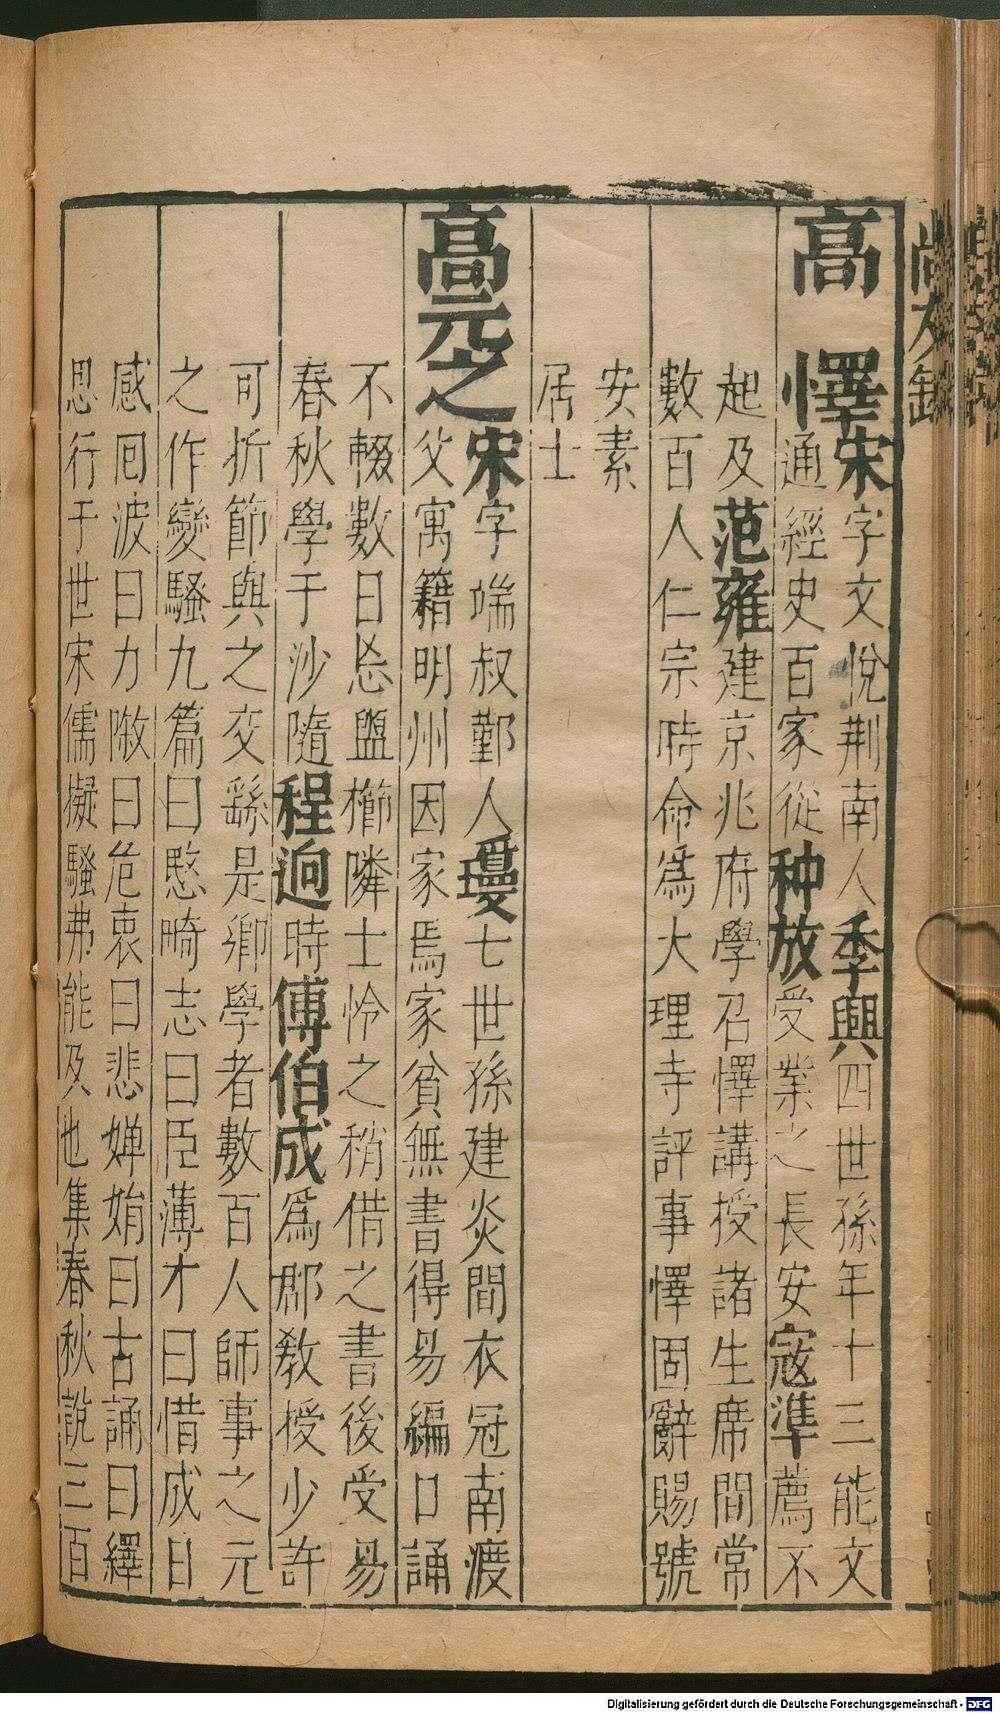 高
懌宋字文悅荆南人季興四世孫年十三能文
通經史百家從种放受業之長安寇準薦不
起及范雍建京兆府學召懌講授諸生席間常
數百人仁宗時命爲大理寺評事懌固辭賜號
安素
居士
高元之宋字端叔鄞人瓊七世孫建炎間衣冠南渡
父寓籍明州因家焉家貧無書得易編口誦
不輟數日忘盥櫛隣士怜之稍借之書後受易
春秋學于沙隨程逈時傅伯成爲郡教授少許
可折節與之交繇是鄉學者數百人師事之元
之作變騷九篇曰愍畸志曰臣薄才曰惜成曰
感囘波曰力陬曰危衷曰悲嬋娟曰古誦曰繹
思行于世宋儒擬騷弗能及也集春秋說三百
Digitalisierung gefördert durch die Deutsche Forschungsgemeinschaft - DFG